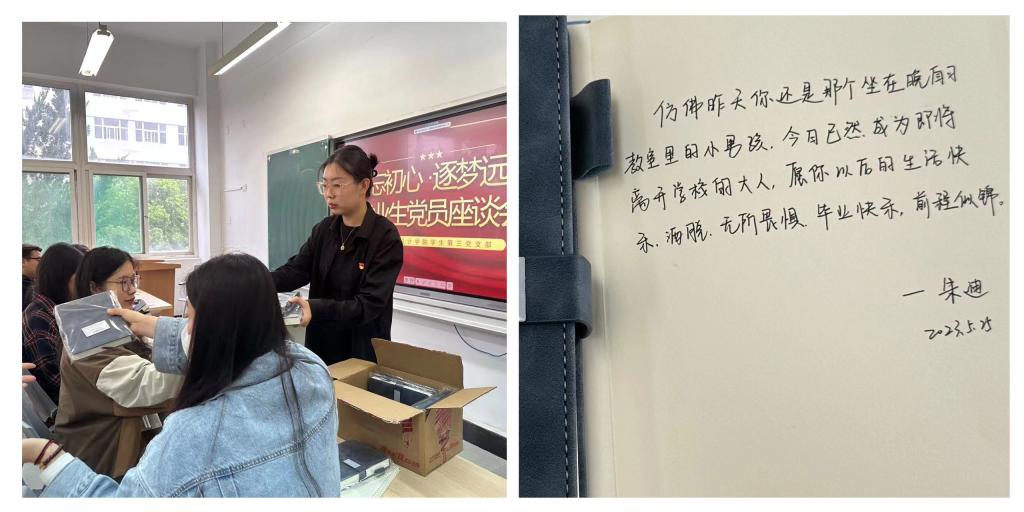 忘初心·逐梦远
业生党员座谈会
计学院学生第三党支部
仿佛昨天你还是那个坐在晚自习
教室里的小男孩，今日已然成为即将
离开学校的大人，愿你以后的生活快
乐，洒脱，无所畏惧，毕业快乐，前程似锦。
— 朱迪
2023.5.25